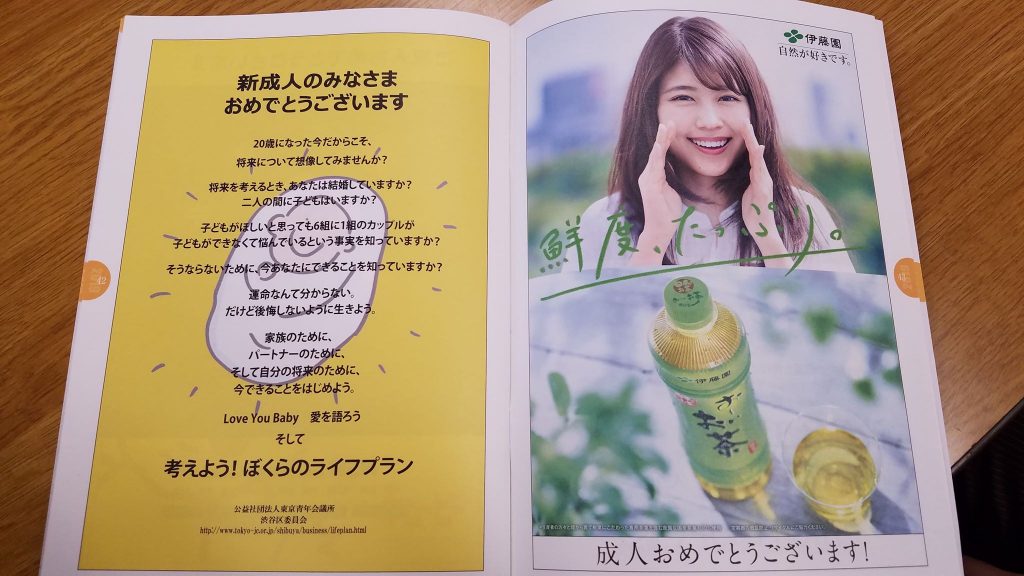 新成人のみなさま
おめでとうございます
20歳になった今だからこそ、
将来について想像してみませんか？
将来を考えるとき、あなたは結婚していますか？
二人の間に子どもはいますか？
子どもがほしいと思っても6組に1組のカップルが
子どもができなくて悩んでいるという事実を知っていますか？
そうならないために、今あなたにできることを知っていますか？
運命なんて分からない。
だけど後悔しないように生きよう。
家族のために、
パートナーのために、
そして自分の将来のために、
今できることをはじめよう。
Love You Baby　愛を語ろう
そして
考えよう！ぼくらのライフプラン
公益社団法人東京青年会議所
渋谷区委員会
http://www.tokyo-jc.or.jp/shibuya/business/lifeplan.html
42
伊藤園
自然が好きです。
鮮度、たっぷり。
伊藤園
お〜いお茶
成人おめでとうございます！
43